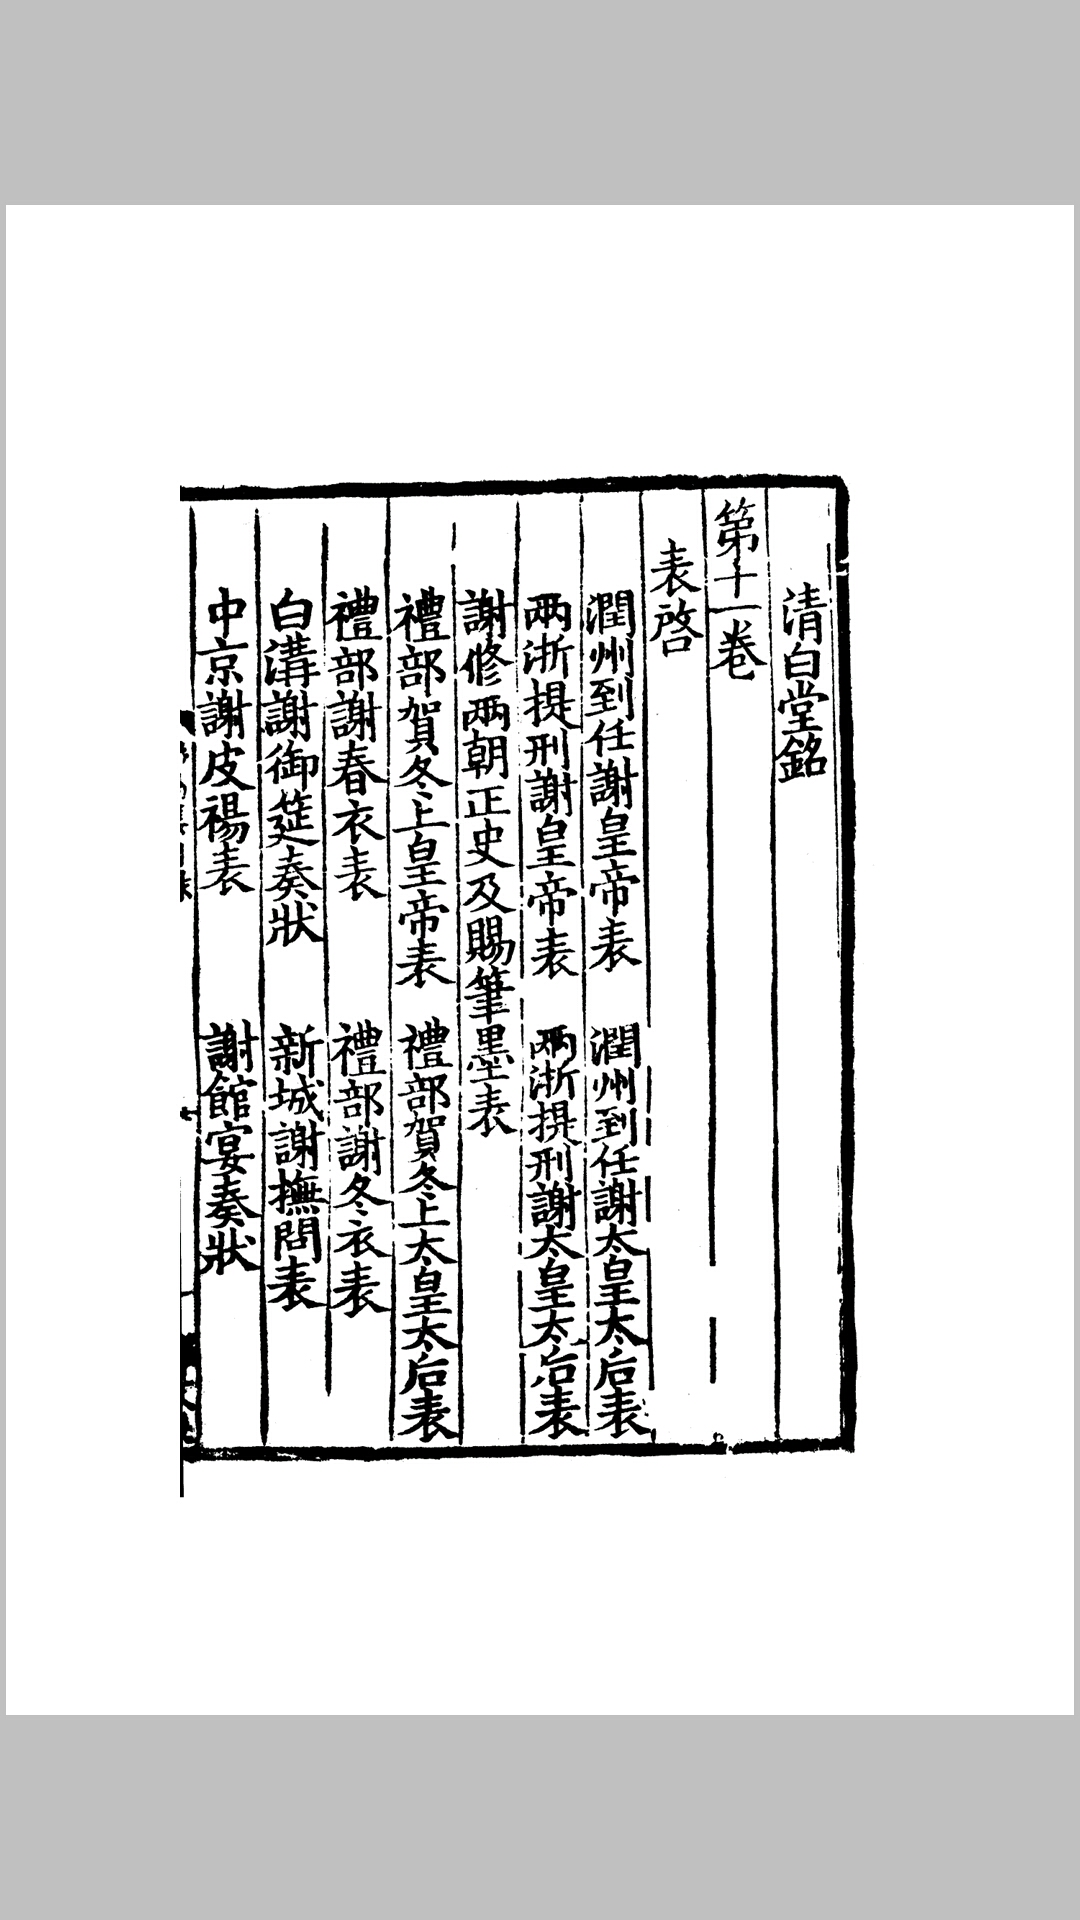 清白堂銘
第十一卷
表啓
潤州到任謝皇帝表　潤州到任謝太皇太后表
兩浙提刑謝皇帝表　兩浙提刑謝太皇太后表
謝修兩朝正史及賜筆墨表
禮部賀冬上皇帝表　禮部賀冬上太皇太后表
禮部謝春衣表　禮部謝冬衣表
白溝謝御筵奏狀　新城謝撫問表
中京謝皮裼表　謝館宴奏狀